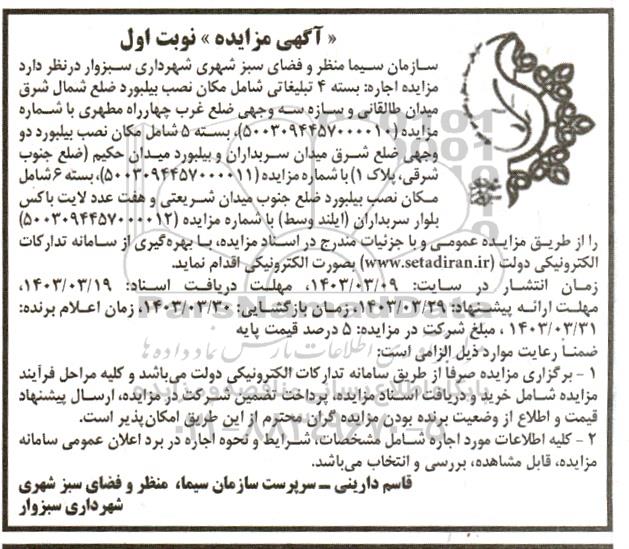 « آگهی مزایده » نوبت اول
سازمان سیما منظر و فضای سبز شهری شهرداری سبزوار درنظر دارد
مزایده اجاره: بسته ۴ تبلیغاتی شامل مکان نصب بیلبورد ضلع شمال شرق
میدان طالقانی و سازه سه وجهی ضلع غرب چهارراه مطهری با شماره
مزایده (۵۰۰۳۰۹۴۴۵۷۰۰۰۰۱۰)، بسته ۵ شامل مکان نصب بیلبورد دو
وجهی ضلع شرق میدان سربداران و بیلبورد میدان حکیم (ضلع جنوب
شرقی، پلاک ۱) با شماره مزایده (۵۰۰۳۰۹۴۴۵۷۰۰۰۰۱۱)، بسته ۶ شامل
مکان نصب بیلبورد ضلع جنوب میدان شریعتی و هفت عدد لایت باکس
بلوار سربداران (آیلند وسط) با شماره مزایده (۵۰۰۳۰۹۴۴۵۷۰۰۰۰۱۲)
را از طریق مزایده عمومی و با جزئیات مندرج در اسناد مزایده، با بهره‌گیری از سامانه تدارکات
الکترونیکی دولت (www.setadiran.ir) بصورت الکترونیکی اقدام نماید.
زمان انتشار در سایت: ۱۴۰۳/۰۳/۰۹، مهلت دریافت اسناد: ۱۴۰۳/۰۳/۱۹،
مهلت ارائه پیشنهاد: ۱۴۰۳/۰۳/۲۹، زمان بازگشایی: ۱۴۰۳/۰۳/۳۰، زمان اعلام برنده:
۱۴۰۳/۰۳/۳۱ ، مبلغ شرکت در مزایده: ۵ درصد قیمت پایه
ضمناً رعایت موارد ذیل الزامی است:
۱ - برگزاری مزایده صرفا از طریق سامانه تدارکات الکترونیکی دولت می‌باشد و کلیه مراحل فرآیند
مزایده شامل خرید و دریافت اسناد مزایده، پرداخت تضمین شرکت در مزایده، ارسال پیشنهاد
قیمت و اطلاع از وضعیت برنده بودن مزایده گران محترم از این طریق امکان‌پذیر است.
۲ - کلیه اطلاعات مورد اجاره شامل مشخصات، شرایط و نحوه اجاره در برد اعلان عمومی سامانه
مزایده، قابل مشاهده، بررسی و انتخاب می‌باشد.
قاسم دارینی ـ سرپرست سازمان سیما، منظر و فضای سبز شهری
شهرداری سبزوار